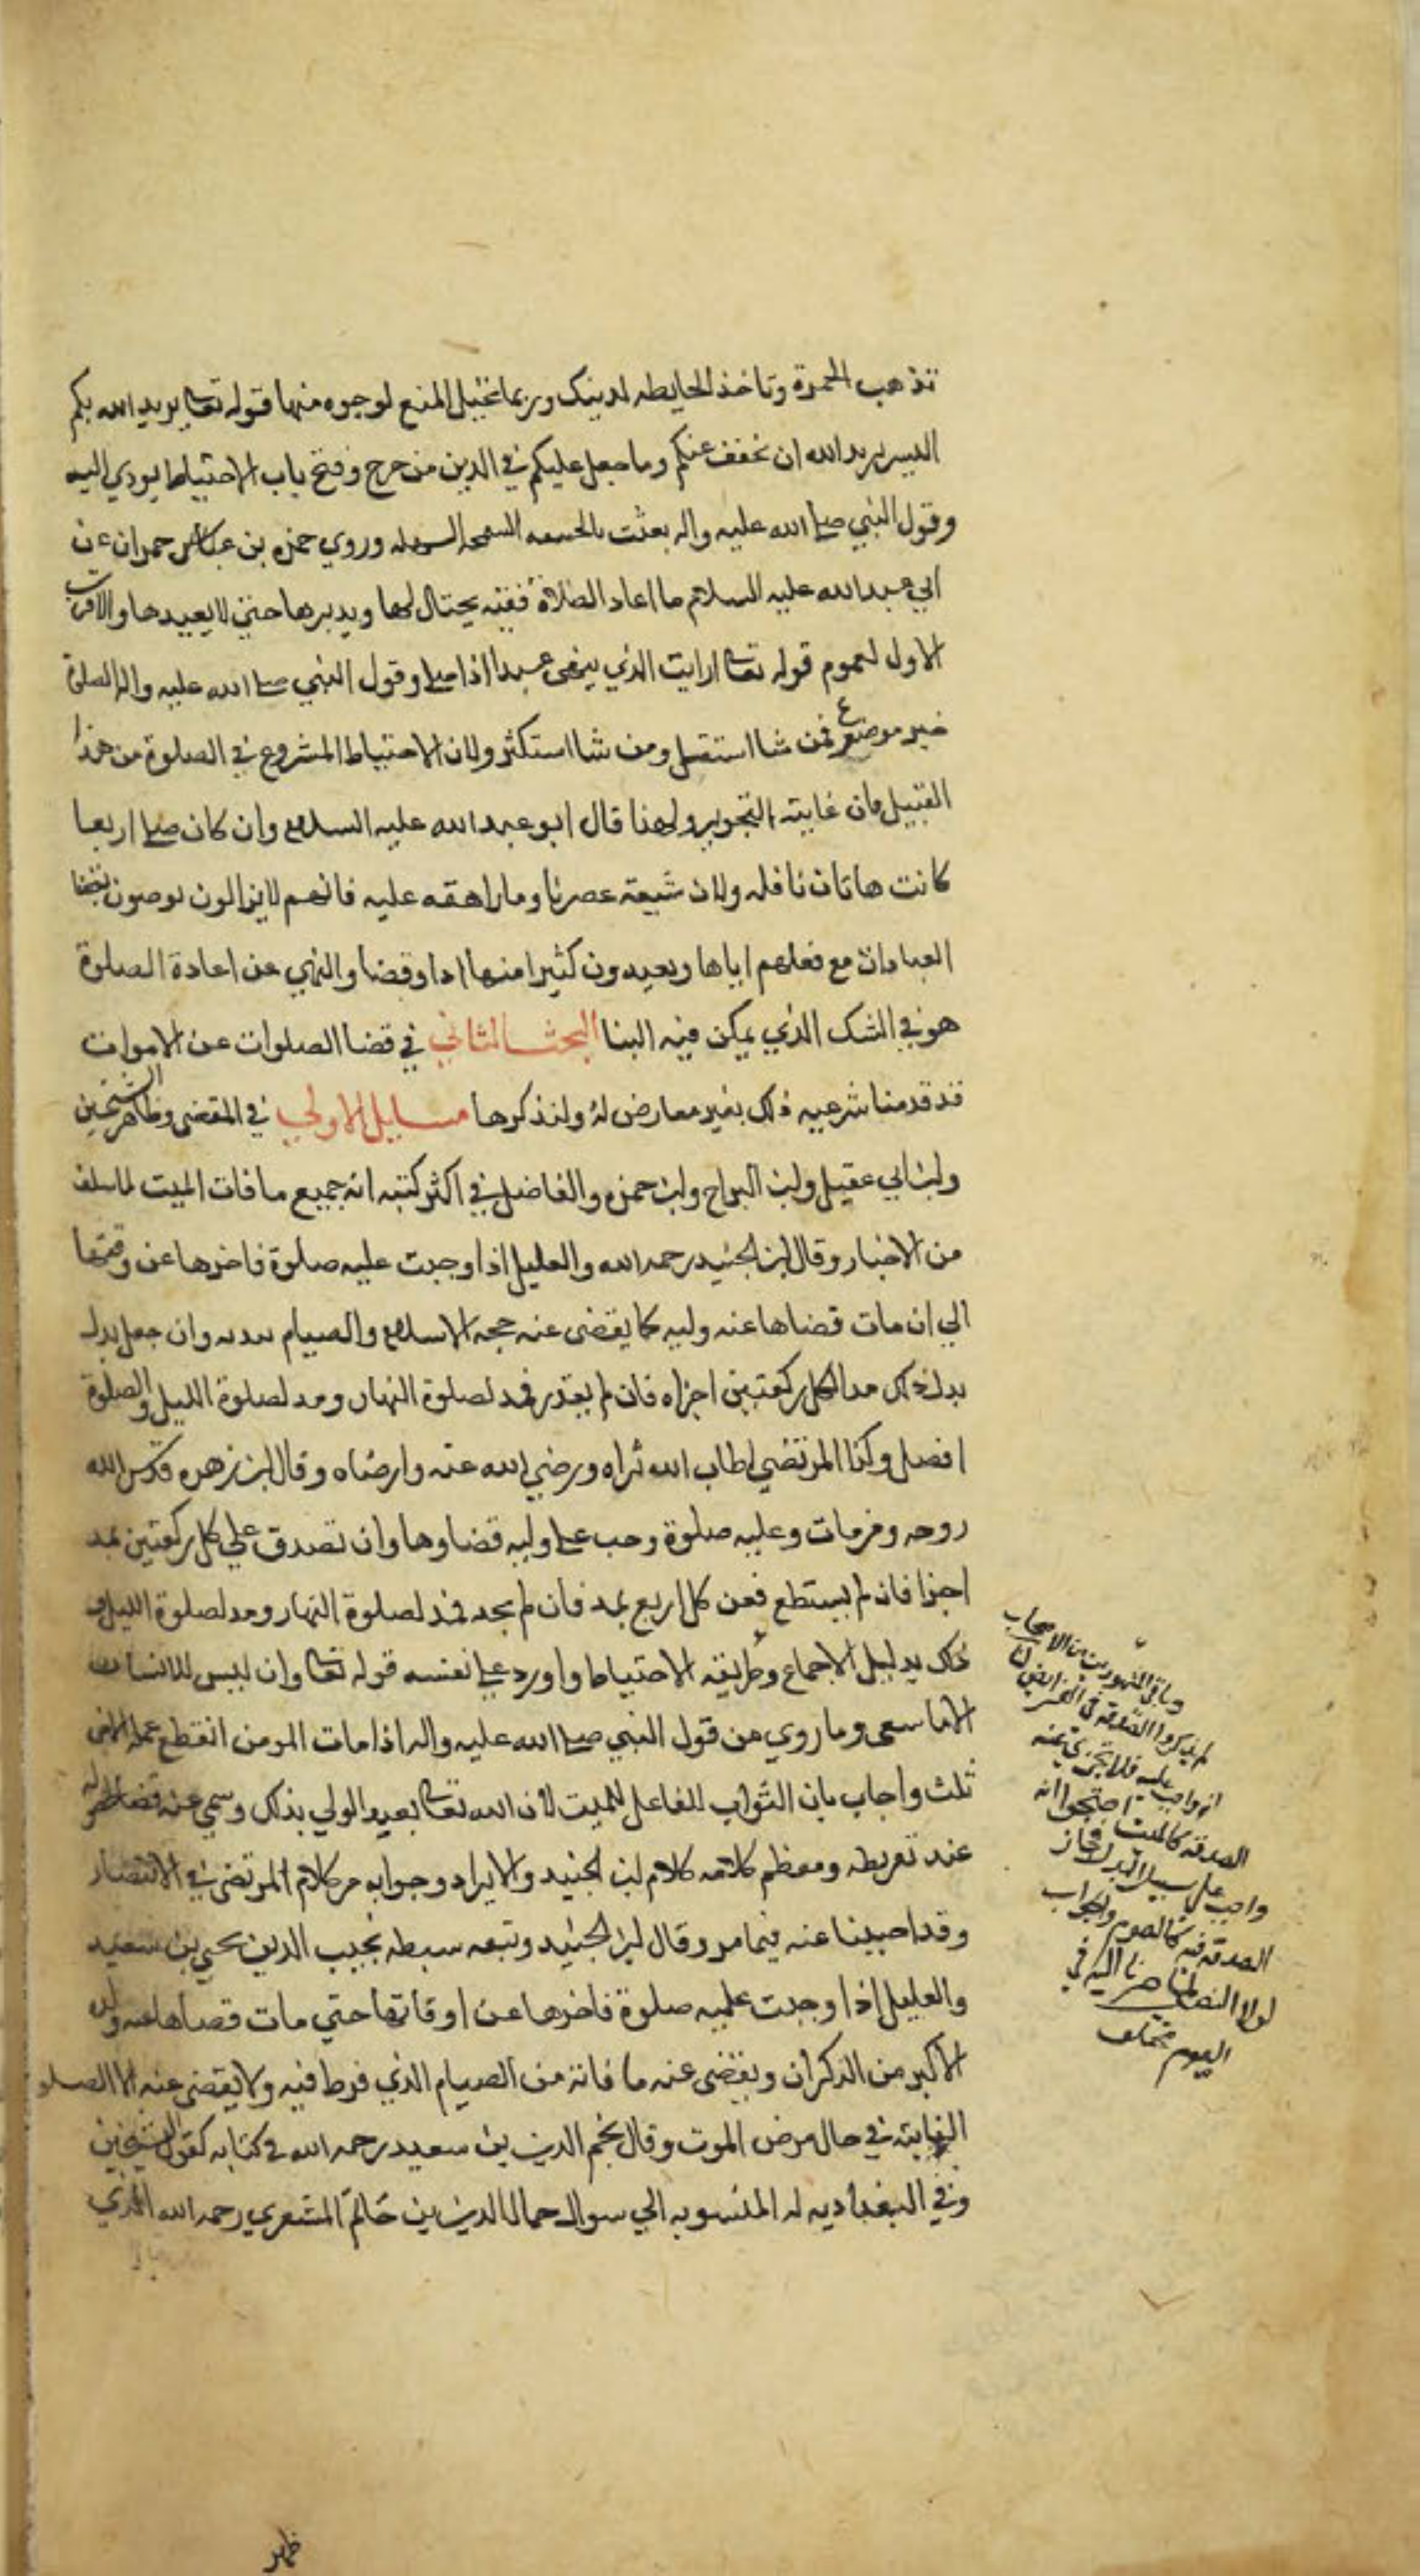 تذهب الحمرة وتاخذ الحايطه لدينك وربما تخيل المنع لوجوه منها قوله تعا يريد الله بكم
اليسر يريد الله ان يخفف عنكم وما جعل عليكم في الدين من حرج وفتح باب الاحتياط يودي اليه
وقول النبي صلى الله عليه واله بعثت بالحنيفيه السمحه السهله وروي حمزه بن حمران عن
ابي عبدالله عليه السلام ما اعاد الصلاة فقيه يحتال لها ويدبرها حتى لا يعيدها والاقرب
الاول لعموم قوله تعا ارايت الذي ينهى عبدا اذا صلى وقول النبي صلى الله عليه واله الصلوة
خير موضوع فمن شا استقل ومن شا استكثر ولان الاحتياط المشروع في الصلوة من هذا
القبيل فان غايته التجويز ولهذا قال ابو عبدالله عليه السلام وان كان صلى اربعا
كانت هاتان نافله ولان شيعة عصرنا وما راهقه عليه فانهم لا يزالون يوصون بقضا
العبادات مع فعلهم اياها ويعيدون كثيرا منها ادا وقضا والنهي عن اعادة الصلوة
هو في الشك الذي يمكن فيه البنا البحث الثاني في قضا الصلوات عن الاموات
قد قدمنا شرعيه ذلك بغير معارض له ولنذكرها مسايل الاولى في المقضى وظاهر الشيخين
وابن ابي عقيل وابن البراج وابن حمزه والفاضل في اكثر كتبه انه جميع ما فات الميت لما سلف
من الاخبار وقال ابن الجنيد رحمه الله والعليل اذا وجبت عليه صلوة فاخرها عن وقتها
الى ان مات قضاها عنه وليه كما يقضى عنه حجه الاسلام والصيام ببدنه وان جعل بدل
بدل ذلك مدا لكل ركعتين اجزاه فان لم يقدر فمد لصلوة النهار ومد لصلوة الليل والصلوة
افضل وكذا المرتضى اطاب الله ثراه ورضي الله عنه وارضاه وقال ابن زهره قدس الله
روحه ومن مات وعليه صلوة وجب على وليه قضاوها وان تصدق على كل ركعتين بمد
اجزا فان لم يستطع فعن كل اربع بمد فان لم يجد فمد لصلوة النهار ومد لصلوة الليل
ذلك بدليل الاجماع وطريقه الاحتياط واورد على نفسه قوله تعا وان ليس للانسان
الا ما سعى وما روي من قول النبي صلى الله عليه واله اذا مات المومن انقطع عمله الا من
ثلث واجاب بان الثواب للفاعل لا للميت لان الله تعا تعبد الولي بذلك وسمي عنه قضا
عند تفريطه ومعظم كلامه كلام ابن الجنيد والايراد وجوابه من كلام المرتضى في الانتصار
وقد اجبنا عنه فيما مر وقال ابن الجنيد وتبعه سبطه نجيب الدين يحيى بن سعيد
والعليل اذا وجبت عليه صلوة فاخرها عن اوقاتها حتى مات قضاها عنه ولده
الاكبر من الذكران ويقضى عنه ما فاته من الصيام الذي فرط فيه ولا يقضى عنه الا الصلوة
الفايته في حال مرض الموت وقال نجم الدين بن سعيد رحمه الله في كتابه كقول الشيخين
وفي البغداديه له المنسوبه الى سوال جمال الدين بن حاتم المشغري رحمه الله الذي
وباقي المشهورين من الاصحاب
لم يذكروا الصدقة في الفرايض لنا
انه واجب عليه فلا تجزي عنه
الصدقة كالميت احتجوا انه
واجب على سبيل البدل فجاز
الصدقه فيه كالصوم والجواب
لولا النص لما صرنا اليه في
الصوم مختلف
ظهر